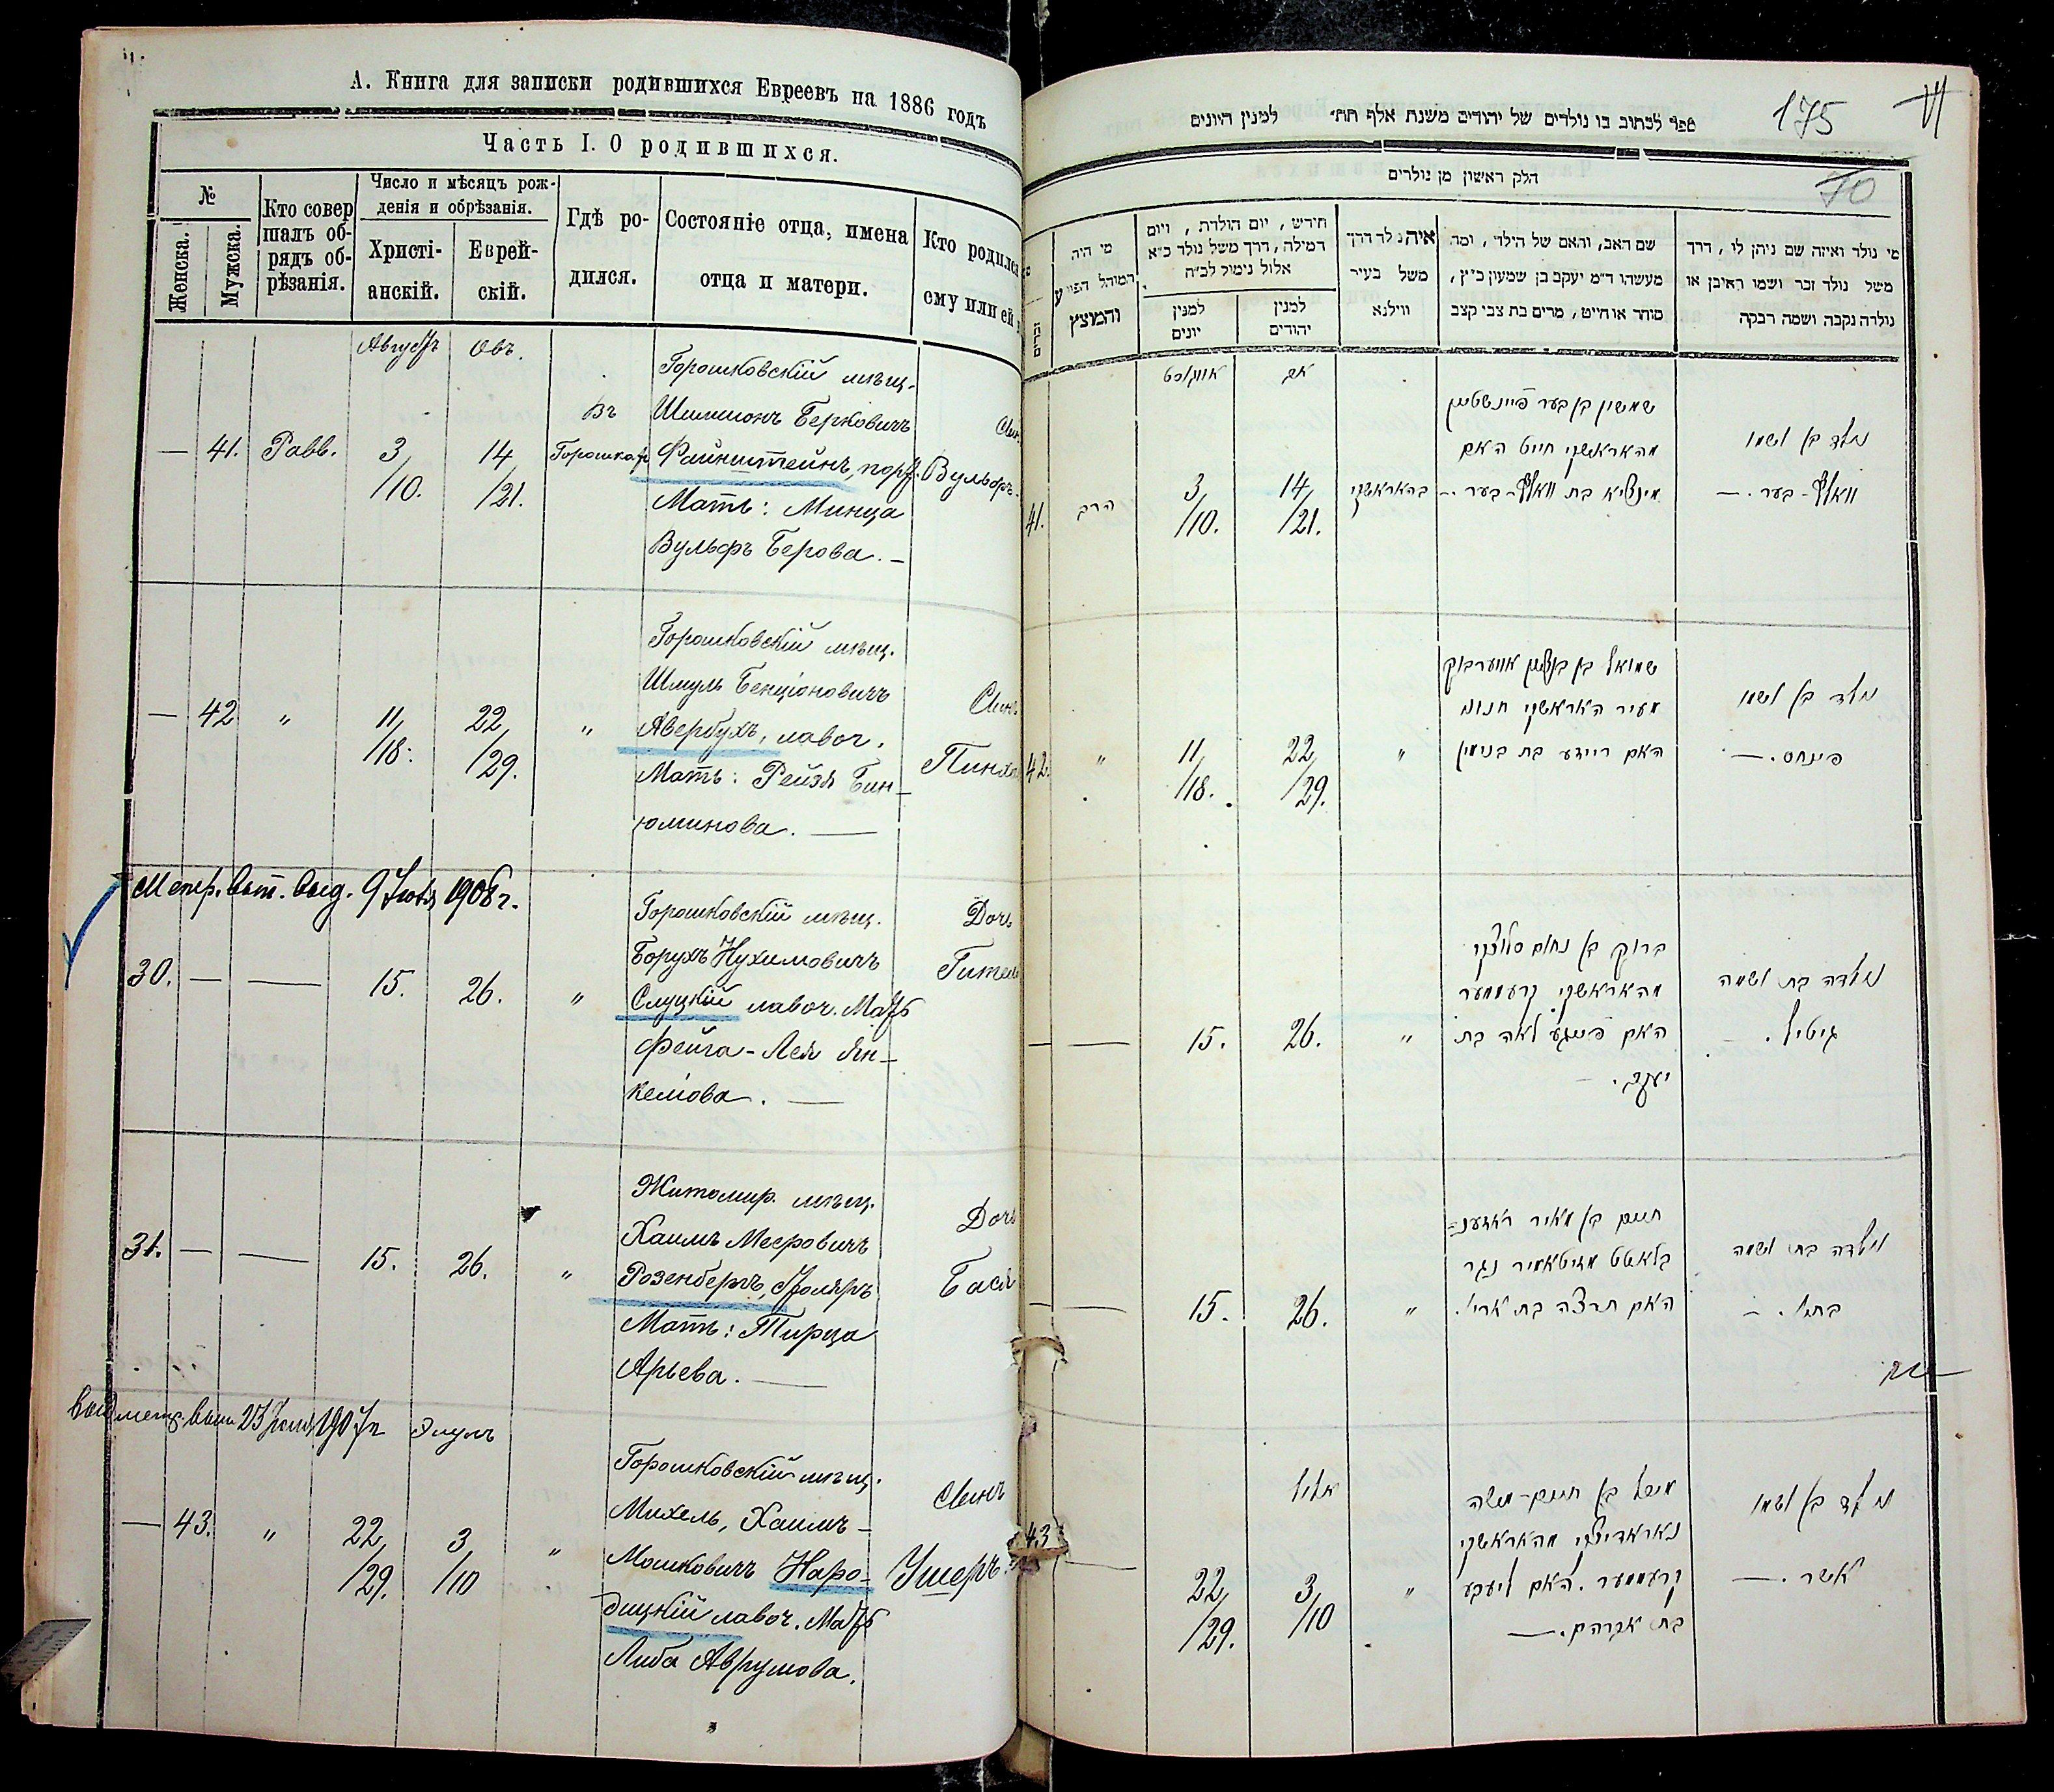 А. Книга для записки родившихся Евреевъ на 1886 годъ
Часть I. О родившихся.
№
Женска.
Мужска.
Кто совер
шалъ об-
рядъ об-
рѣзанія.
Число и мѣсяцъ рож-
денія и обрѣзанія.
Христі-
анскій.
Еврей-
скій.
Гдѣ ро-
дился.
Состояніе отца, имена
отца и матери.
Кто родился
ему или ей
Августъ
Овъ.
— 41. Равв.
3/10.
14/21.
Въ
Горошкахъ
Горошковскій мѣщ.
Шимшонъ Берковичъ
Файнштейнъ, порт.
Мать: Минца
Вульфъ Берова. —
Сын
Вульфъ-
— 42 "
11/18.
22/29.
"
Горошковскій мѣщ.
Шмуль Бенціоновичъ
Авербухъ, лавоч.
Мать: Рейзя Бин-
юминова. —
Сынъ
Пинха
Метр. вып. выд. 9 Іюля 1908 г.
30. — — 15. 26. "
Горошковскій мѣщ.
Борухъ Нухимовичъ
Слуцкій лавоч. Мать
Фейга-Лея Ян-
келіова. —
Дочь
Гитель
31. — — 15. 26. "
Житомир. мѣщ.
Хаимъ Мееровичъ
Розенбергъ, Столяръ
Мать: Тирца
Арьева. —
Дочь
Бася
Выд метр. вып 23 Іюля 1907 г
Элулъ
— 43. "
22/29.
3/10
"
Горошковскій мѣщ.
Михель, Хаимъ-
Мошковичъ Наро-
дицкій лавоч. Мать
Либа Аврумова.
Сынъ
Ушеръ
175
70
ספר לכתוב בו נולדים של יהודים משנת אלף תת״ למנין היונים
חלק ראשון מן נולדים
מי היה
המוהל הפורע
והמוצץ
חידש, יום הולדת, ויום
דמילה, דרך משל נולד כ״א
אלול נימול לכ״ח
למנין
יונים
למנין
יהודים
איה נלד דרך
משל בעיר
ווילנא
שם האב, והאם של הילד, ומה
מעשהו ד״מ יעקב בן שמעון כ״ץ,
סוחר או חייט, מרים בת צבי קצב
מי נולד ואיזה שם ניתן לו, דרך
משל נולד זכר ושמו ראובן או
נולדה נקבה ושמה רבקה
זכרים
אווגוסט
אב
41. הרב
3/10.
14/21.
בהאראשקי
שמשון בן בער פיינשטיין
מהאראשקי חייט האם
מינציא בת וואלף-בער. —
נולד בן ושמו
וואלף-בער. —
42. "
11/18.
22/29.
"
שמואל בן בנציון אווערבוך
מעיר האראשקי חנוני
האם רייזע בת בנימין
נולד בן ושמו
פינחס. —
— — 15. 26. "
ברוך בן נחום סלוצקי
מהאראשקי קרעמער
האם פייגע לאה בת
יעקב. —
נולדה בת ושמה
גיטיל. —
— — 15. 26. "
חיים בן מאיר ראזענ=
בלאטט מזיטאמיר נגר
האם תרצה בת ארי׳.
נולדה בת ושמה
בתי׳. —
אלול
43 —
22/29.
3/10
"
מיכל בן חיים-משה
נאראדיצקי מהאראשקי
קרעמער. האם ליבע
בת אברהם. —
נולד בן ושמו
אשר. —